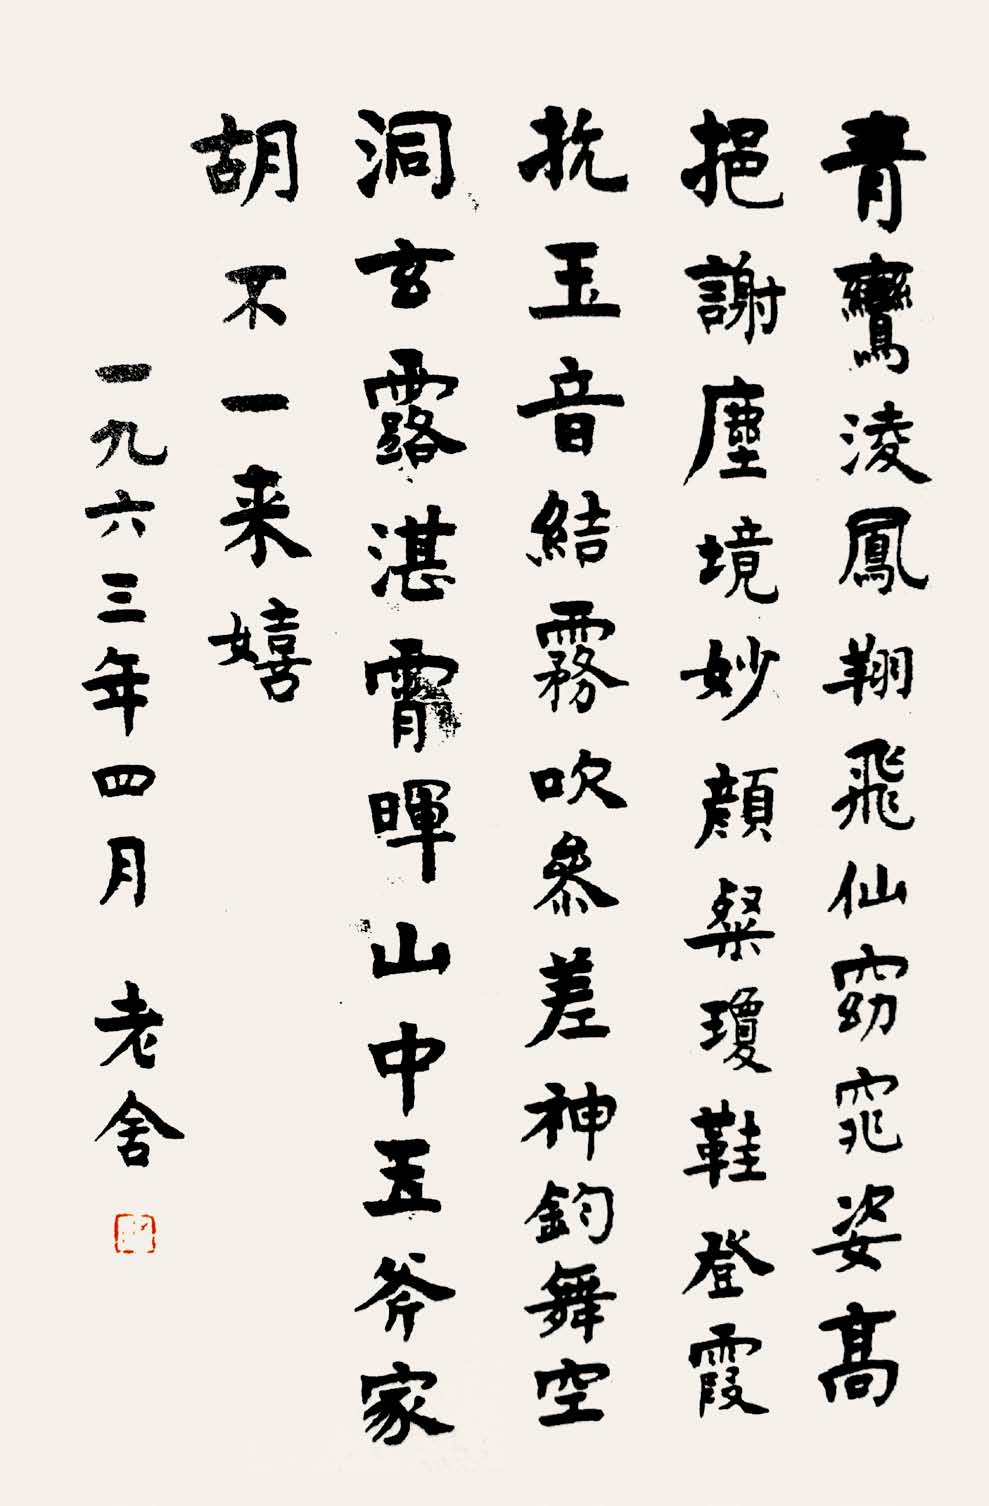 青鸞淩鳳翔飛仙窈窕姿高
挹謝塵境妙顏粲瓊鞋登霞
抗玉音結霧吹參差神鈞舞空
洞玄露湛霄暉山中五斧家
胡不一来嬉
一九六三年四月 老舍